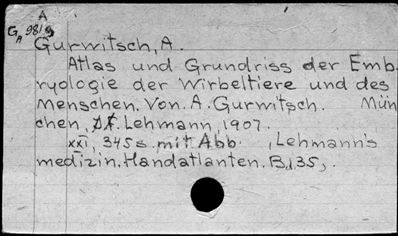 A
G 98/9
A
Gurwitsch, A.
Atlas und Grundriss der Emb
ryologie der Wirbeltiere und des
Menschen. Von. A. Gurwitsch. Mün
chen, Lehmann, 1907.
XXI, 345s. mit Abb. , Lehmann's
medizin. Handatlanten. Bd, 35,.